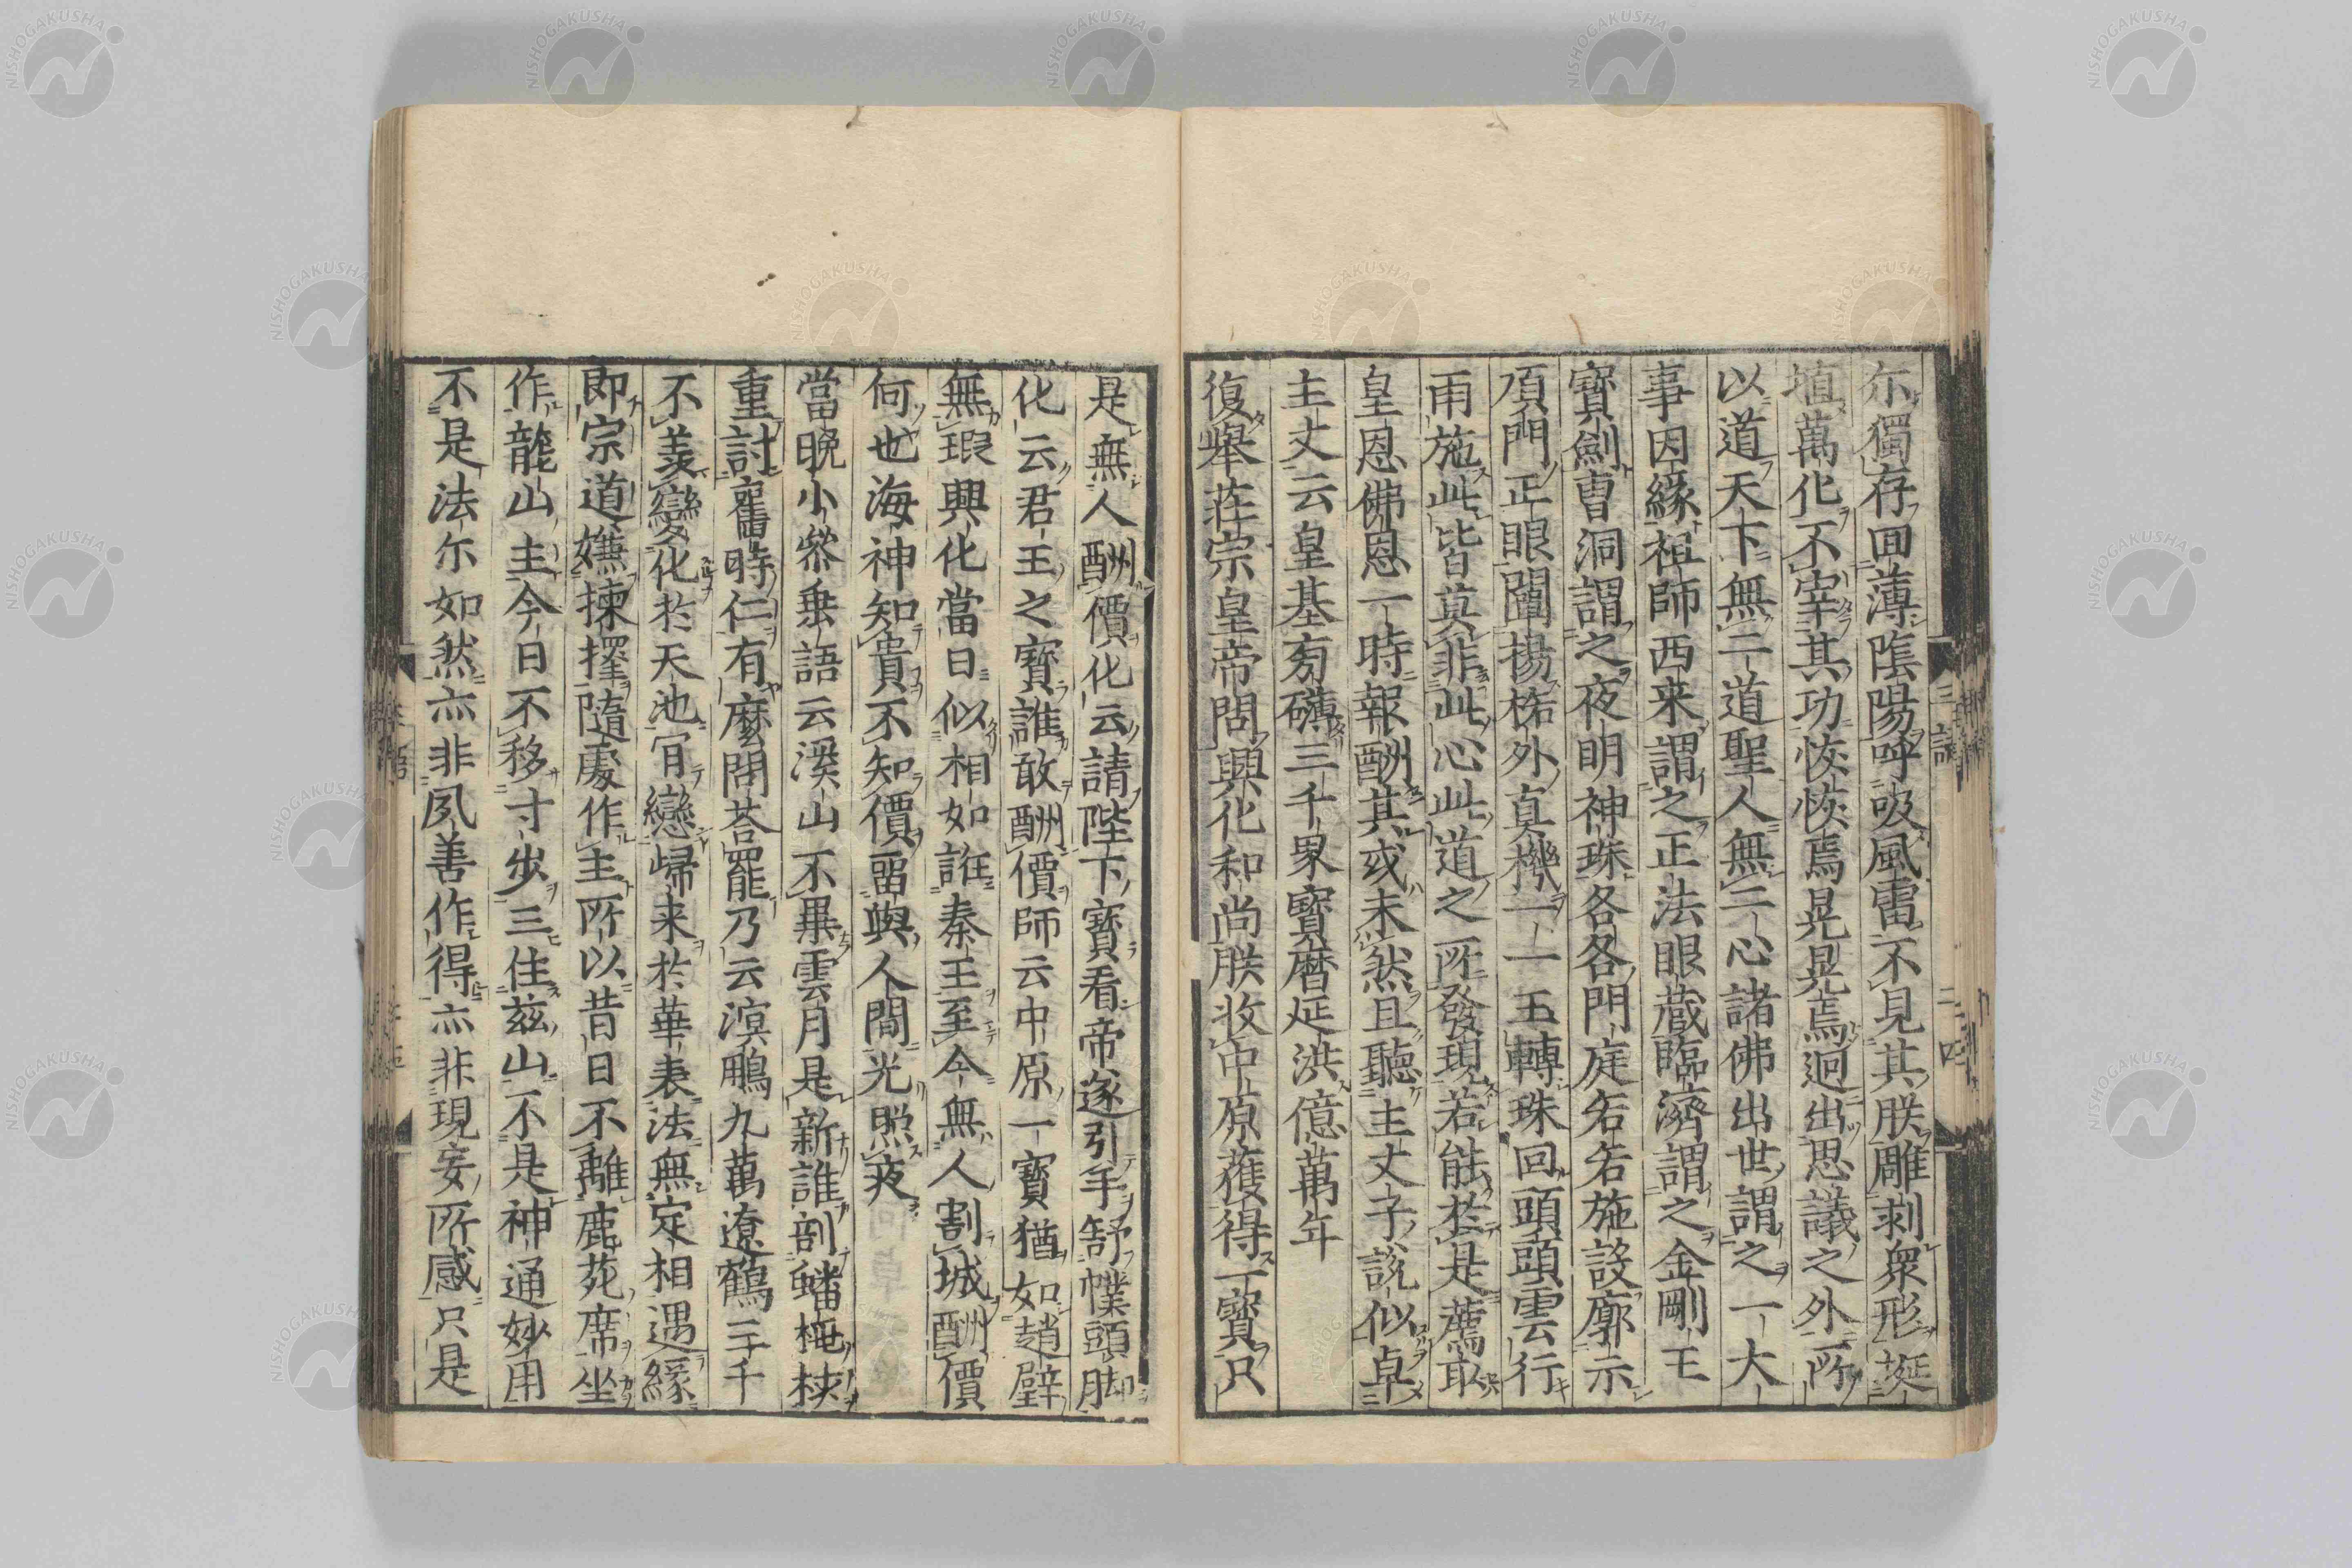 尓獨存回薄陰陽呼吸風雷不見其朕雕刻衆形埏
埴萬化不宰其功恢恢焉晃晃焉逈出思議之外所
以道天下無二道聖人無二心諸佛出世謂之一大
事因緣祖師西来謂之正法眼蔵臨濟謂之金剛王
寶劍曹洞謂之夜明神珠各各門庭若若施設廓示
頂門正眼闡揚格外真機一一玉轉珠回頭頭雲行
雨施此皆莫非此心此道之所發現若能於是薦取
皇恩佛恩一時報酬其或未然且聽主丈子說似卓
主丈云皇基旁礴三千界寶暦延洪億萬年
復舉荘宗皇帝問興化和尚朕收中原獲得一寶只
是無人酬價化云請陛下寶看帝遂引手舒幞頭脚
化云君王之寶誰敢酬價師云中原一寶猶如趙璧
無瑕興化當日似相如誑秦王至今無人割城酬價
何也海神知貴不知價畱與人間光照夜
當晚小參垂語云溪山不異雲月是新誰剖蟠桃核
重討舊時仁有麼問荅罷乃云溟鵬九萬遼鶴三千
不羡變化於天池冝戀歸来於華表法無定相遇緣
即宗道嫌揀擇隨處作主所以昔日不離鹿苑席坐
作龍山主今日不移寸步三住茲山不是神通妙用
不是法尓如然亦非夙善作得亦非現妄所感只是